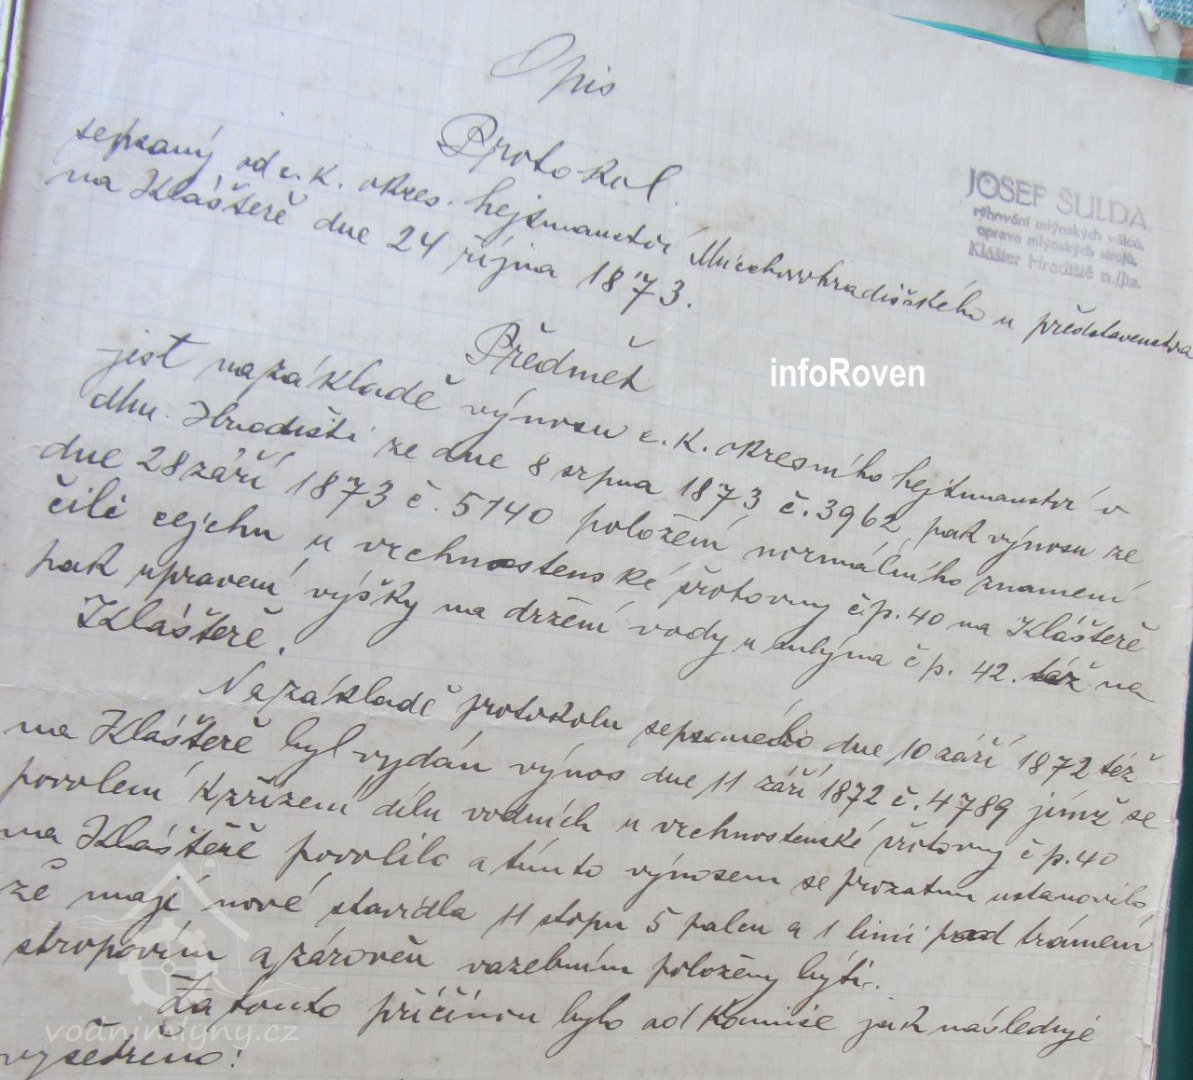 Opis
Protokol.
sepsaný od c. k. okres. hejtmanství Mnichovohradišťského u představenstva
na Klášteře dne 24 října 1873.
JOSEF ŠULDA,
rýhování mlýnských válců,
oprava mlýnských strojů,
Klášter Hradiště n./Jiz.
Předmět
infoRoven
jest na základě výnosu c. k. okresního hejtmanství v
Mn. Hradišti ze dne 8 srpna 1873 č. 3962, pak výnosu ze
dne 28 září 1873 č. 5140 položení normálního znamení
čili cejchu u vrchnostenské šrotovny č. p. 40 na Klášteře
pak upravení výšky na držení vody u mlýna č p. 42. též na
Klášteře.
Na základě protokolu sepsaného dne 10 září 1872 též
na Klášteře byl vydán výnos dne 11 září 1872 č. 4789 jímž se
povolení k zřízení dílu vodních u vrchnostenské šrotovny č p. 40
na Klášteře povolilo a tímto výnosem se prozatim ustanovilo,
že mají nové stavidla 11 stopu 5 palcu a 1 linii pod trámem
stropovím a zároveň vazebním položeny býti.
Za touto příčinou bylo od komise jak následuje
vyšetřeno:
vodnimlyny.cz